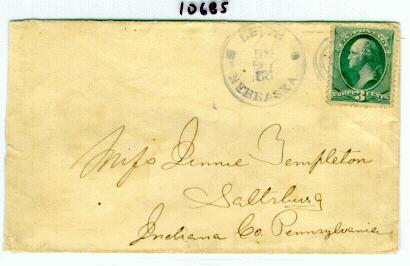 10685
NEBRASKA
U.S. POSTAGE
THREE 3 CENTS
Miss Jennie Templeton
Saltsburg
Indiana Co. Pennsylvania